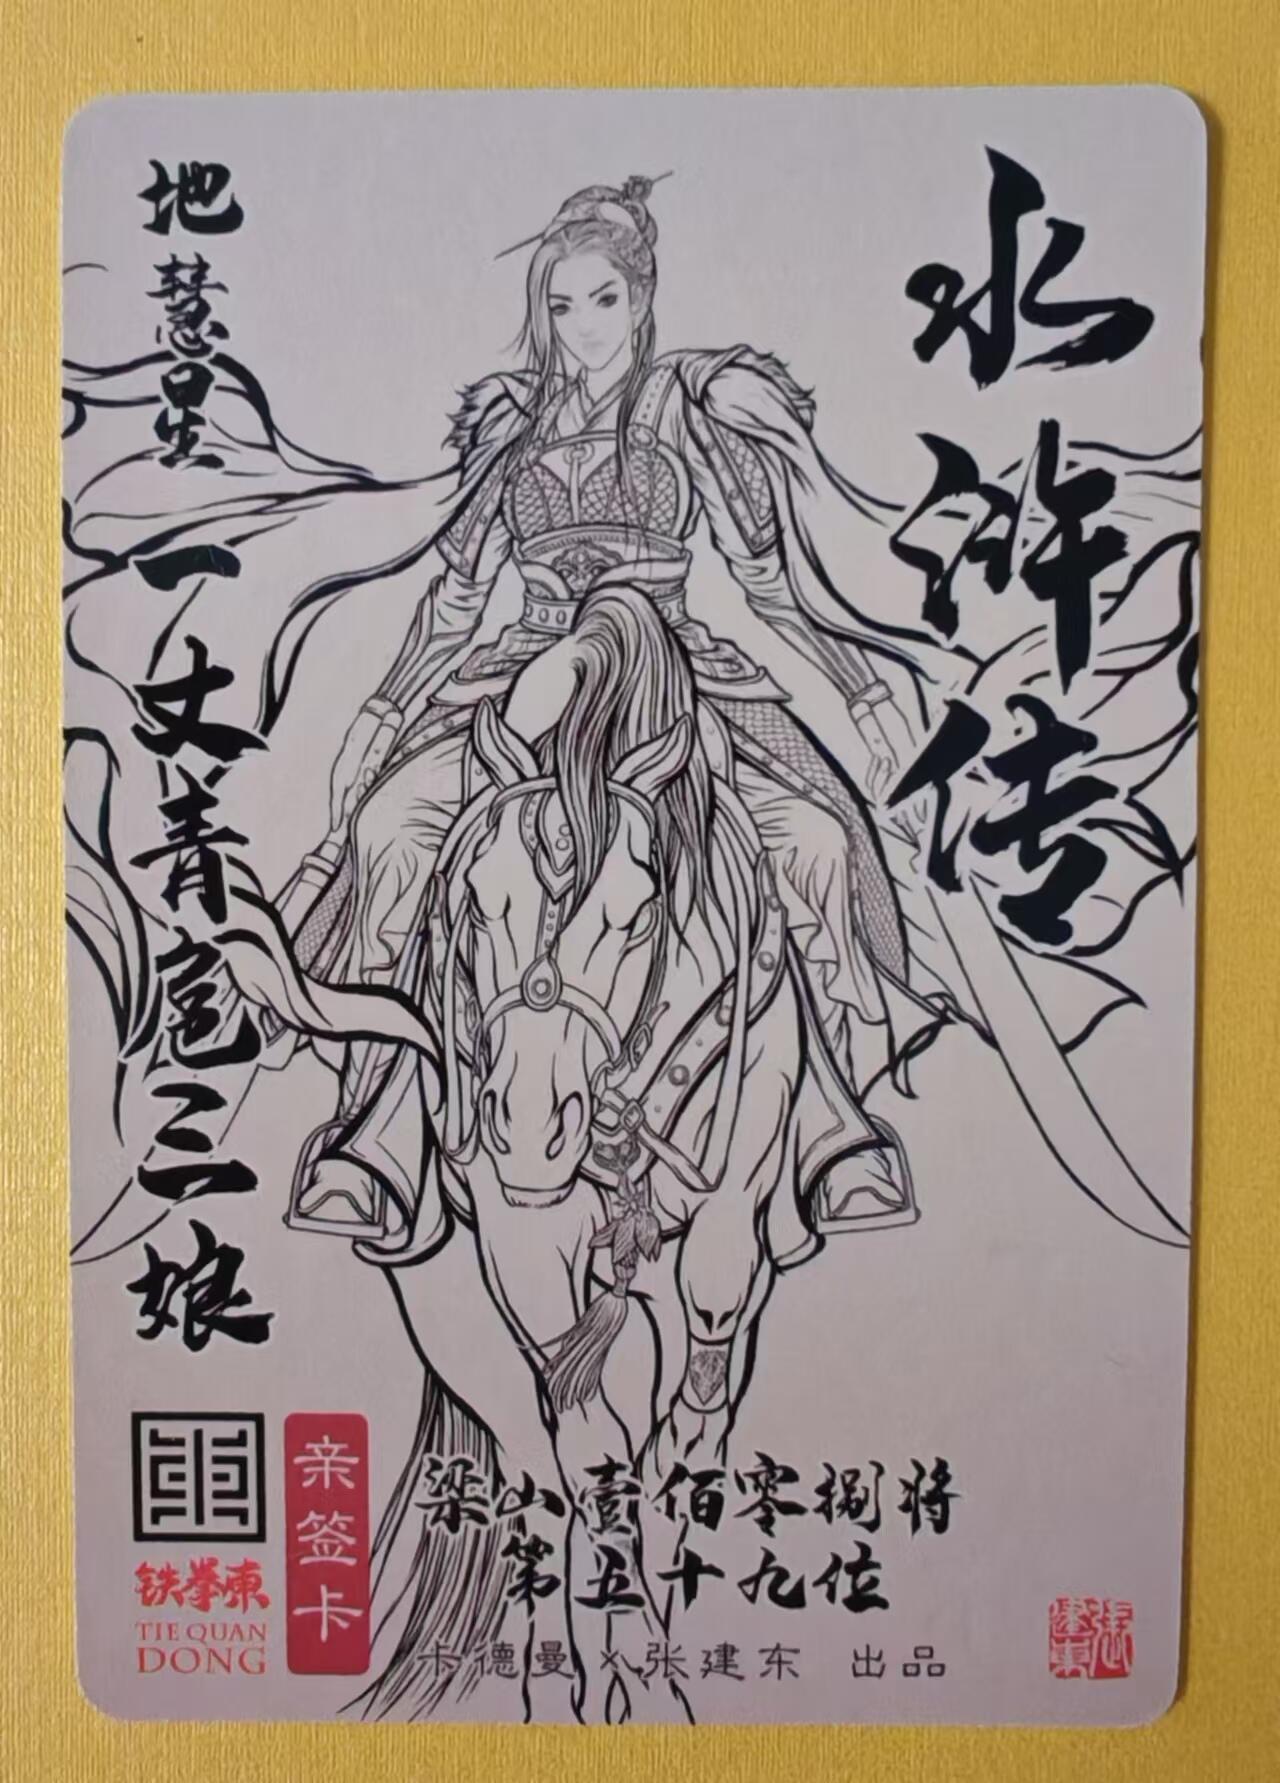 水浒传
地慧星
一丈青扈三娘
梁山壹佰零捌将
第五十九位
卡德曼×张建东 出品
亲签卡
铁拳東
TIE QUAN
DONG
張建東